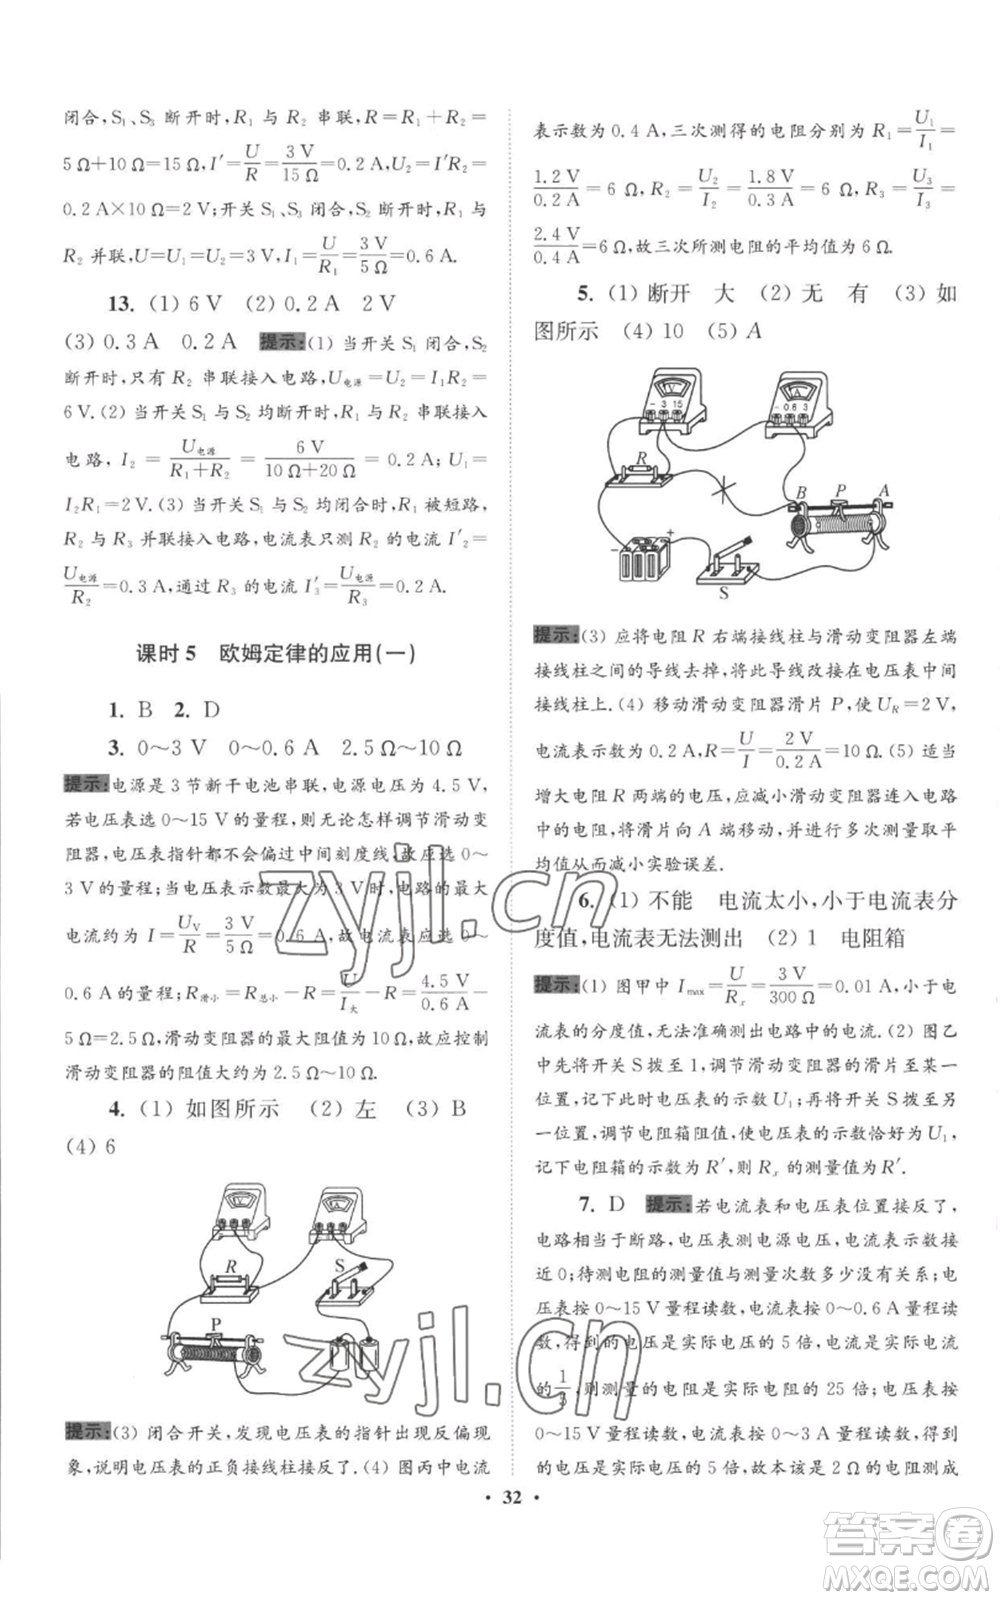 闭合,S₁、S₃ 断开时,R₁ 与 R₂ 串联,R=R₁+R₂=
5 Ω+10 Ω=15 Ω,I′=U/R=3 V/15 Ω=0.2 A,U₂=I′R₂=
0.2 A×10 Ω=2 V;开关 S₁、S₃ 闭合,S₂ 断开时,R₁ 与
R₂ 并联,U=U₁=U₂=3 V,I₁=U/R₁=3 V/5 Ω=0.6 A.
13. (1) 6 V (2) 0.2 A 2 V
(3) 0.3 A 0.2 A 提示:(1) 当开关 S₁ 闭合,S₂
断开时,只有 R₂ 串联接入电路,U电源=U₂=I₁R₂=
6 V.(2) 当开关 S₁ 与 S₂ 均断开时,R₁ 与 R₂ 串联接入
电路,I₂=U电源/(R₁+R₂)=6 V/(10 Ω+20 Ω)=0.2 A;U₁=
I₂R₁=2 V.(3) 当开关 S₁ 与 S₂ 均闭合时,R₁ 被短路,
R₂ 与 R₃ 并联接入电路,电流表只测 R₂ 的电流 I′₂=
U电源/R₂=0.3 A,通过 R₃ 的电流 I′₃=U电源/R₃=0.2 A.
课时 5 欧姆定律的应用(一)
1. B 2. D
3. 0～3 V 0～0.6 A 2.5 Ω～10 Ω
提示:电源是 3 节新干电池串联,电源电压为 4.5 V,
若电压表选 0～15 V 的量程,则无论怎样调节滑动变
阻器,电压表指针都不会偏过中间刻度线,故应选 0～
3 V 的量程;当电压表示数最大为 3 V 时,电路的最大
电流约为 I=Uv/R=3 V/5 Ω=0.6 A,故电流表应选 0～
0.6 A 的量程;R滑小=R总小−R=U/I大−R=4.5 V/0.6 A−
5 Ω=2.5 Ω,滑动变阻器的最大阻值为 10 Ω,故应控制
滑动变阻器的阻值大约为 2.5 Ω～10 Ω.
4. (1) 如图所示 (2) 左 (3) B
(4) 6
R
S
P
提示:(3) 闭合开关,发现电压表的指针出现反偏现
象,说明电压表的正负接线柱接反了.(4) 图丙中电流
表示数为 0.4 A,三次测得的电阻分别为 R₁=U₁/I₁=
1.2 V/0.2 A=6 Ω,R₂=U₂/I₂=1.8 V/0.3 A=6 Ω,R₃=U₃/I₃=
2.4 V/0.4 A=6 Ω,故三次所测电阻的平均值为 6 Ω.
5. (1) 断开 大 (2) 无 有 (3) 如
图所示 (4) 10 (5) A
V
− 3 15
A
− 0.6 3
R
B P A
− +
S
提示:(3) 应将电阻 R 右端接线柱与滑动变阻器左端
接线柱之间的导线去掉,将此导线改接在电压表中间接
线柱上.(4) 移动滑动变阻器滑片 P,使 U_R=2 V,
电流表示数为 0.2 A,R=U/I=2 V/0.2 A=10 Ω.(5) 适当
增大电阻 R 两端的电压,应减小滑动变阻器连入电路
中的电阻,将滑片向 A 端移动,并进行多次测量取平
均值从而减小实验误差.
6. (1) 不能 电流太小,小于电流表分
度值,电流表无法测出 (2) 1 电阻箱
提示:(1) 图甲中 Imax=U/Rx=3 V/300 Ω=0.01 A,小于电
流表的分度值,无法准确测出电路中的电流.(2) 图乙
中先将开关 S 拨至 1,调节滑动变阻器的滑片至某一
位置,记下此时电压表的示数 U₁;再将开关 S 拨至另
一位置,调节电阻箱阻值,使电压表的示数恰好为 U₁,
记下电阻箱的示数为 R′,则 Rx 的测量值为 R′.
7. D 提示:若电流表和电压表位置接反了,
电路相当于断路,电压表测电源电压,电流表示数接
近 0;待测电阻的测量值与测量次数多少没有关系;电
压表按 0～15 V 量程读数,电流表按 0～0.6 A 量程读
数,得到的电压是实际电压的 5 倍,电流是实际电流
的 1/5,则测量的电阻是实际电阻的 25 倍;电流表按
0～3 A 量程读数,电压表按 0～3 V 量程读数,得到的
电流是实际电流的 5 倍,故本该是 2 Ω 的电阻测成
· 32 ·
zyjl.cn
zyjl.cn
答案圈
MXQE.COM